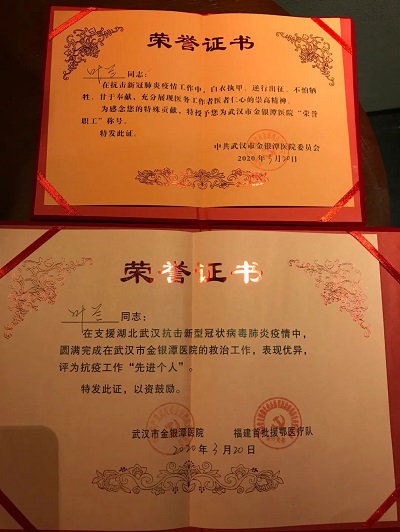 荣誉证书
叶兰 同志：
在抗击新冠肺炎疫情工作中，白衣执甲、逆行出征、不怕牺
牲、甘于奉献，充分展现医务工作者医者仁心的崇高精神。
为感念您的特殊贡献，特授予您为武汉市金银潭医院“荣誉
职工”称号。
特发此证。
中共武汉市金银潭医院委员会
2020年3月20日
荣誉证书
叶兰 同志：
在支援湖北武汉抗击新型冠状病毒肺炎疫情中，
圆满完成在武汉市金银潭医院的救治工作，表现优异，
评为抗疫工作“先进个人”。
特发此证，以资鼓励。
武汉市金银潭医院 福建首批援鄂医疗队
2020年3月20日